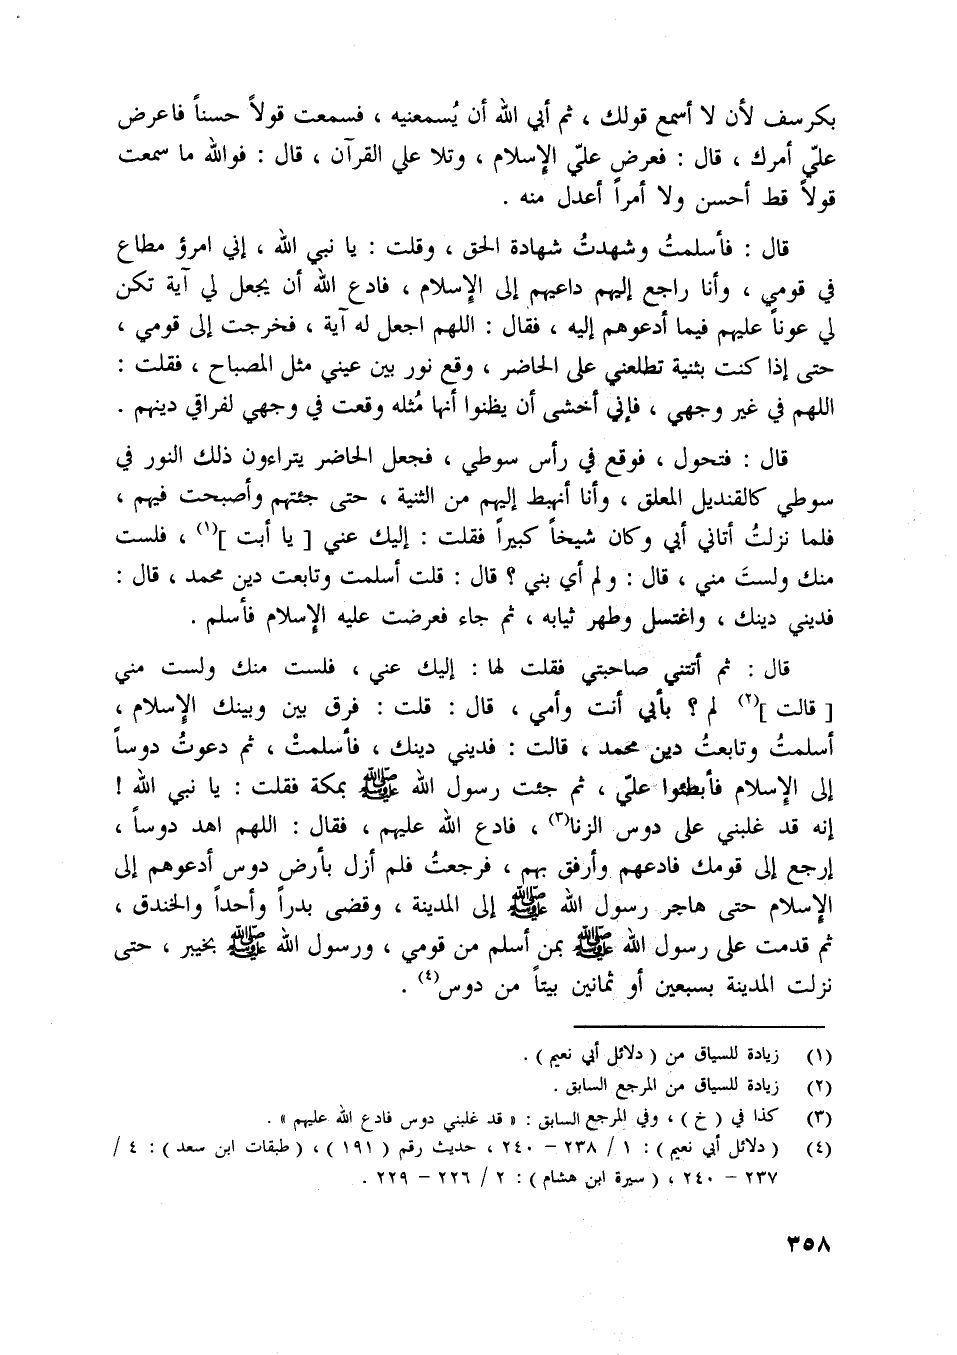 بكرسف لأن لا أسمع قولك ، ثم أبي الله أن يُسمعنيه ، فسمعت قولاً حسناً فاعرض
عليّ أمرك ، قال : فعرض عليّ الإسلام ، وتلا علي القرآن ، قال : فوالله ما سمعت
قولاً قط أحسن ولا أمراً أعدل منه .
قال : فأسلمتُ وشهدتُ شهادة الحق ، وقلت : يا نبي الله ، إني امرؤ مطاع
في قومي ، وأنا راجع إليهم داعيهم إلى الإسلام ، فادع الله أن يجعل لي آية تكن
لي عوناً عليهم فيما أدعوهم إليه ، فقال : اللهم اجعل له آية ، فخرجت إلى قومي ،
حتى إذا كنت بثنية تطلعني على الحاضر ، وقع نور بين عيني مثل المصباح ، فقلت :
اللهم في غير وجهي ، فإني أخشى أن يظنوا أنها مُثله وقعت في وجهي لفراقي دينهم .
قال : فتحول ، فوقع في رأس سوطي ، فجعل الحاضر يتراءون ذلك النور في
سوطي كالقنديل المعلق ، وأنا أنهبط إليهم من الثنية ، حتى جئتهم وأصبحت فيهم ،
فلما نزلتُ أتاني أبي وكان شيخاً كبيراً فقلت : إليك عني [ يا أبت ](١) ، فلست
منك ولستَ مني ، قال : ولم أي بني ؟ قال : قلت أسلمت وتابعت دين محمد ، قال :
فديني دينك ، واغتسل وطهر ثيابه ، ثم جاء فعرضت عليه الإسلام فأسلم .
قال : ثم أتتني صاحبتي فقلت لها : إليك عني ، فلست منك ولست مني
[ قالت ](٢) لم ؟ بأبي أنت وأمي ، قال : قلت : فرق بين وبينك الإسلام ،
أسلمتُ وتابعتُ دين محمد ، قالت : فديني دينك ، فأسلمتْ ، ثم دعوتُ دوساً
إلى الإسلام فأبطئوا عليّ ، ثم جئت رسول الله ﷺ بمكة فقلت : يا نبي الله !
إنه قد غلبني على دوس الزنا(٣) ، فادع الله عليهم ، فقال : اللهم اهد دوساً ،
إرجع إلى قومك فادعهم وأرفق بهم ، فرجعتُ فلم أزل بأرض دوس أدعوهم إلى
الإسلام حتى هاجر رسول الله ﷺ إلى المدينة ، وقضى بدراً وأحداً والخندق ،
ثم قدمت على رسول الله ﷺ بمن أسلم من قومي ، ورسول الله ﷺ بخيبر ، حتى
نزلت المدينة بسبعين أو ثمانين بيتاً من دوس(٤) .
(١) زيادة للسياق من ( دلائل أبي نعيم ) .
(٢) زيادة للسياق من المرجع السابق .
(٣) كذا في ( خ ) ، وفي المرجع السابق : « قد غلبني دوس فادع الله عليهم » .
(٤) ( دلائل أبي نعيم ) : ١ / ٢٣٨ – ٢٤٠ ، حديث رقم ( ١٩١ ) ، ( طبقات ابن سعد ) : ٤ /
٢٣٧ – ٢٤٠ ، ( سيرة ابن هشام ) : ٢ / ٢٢٦ – ٢٢٩ .
٣٥٨